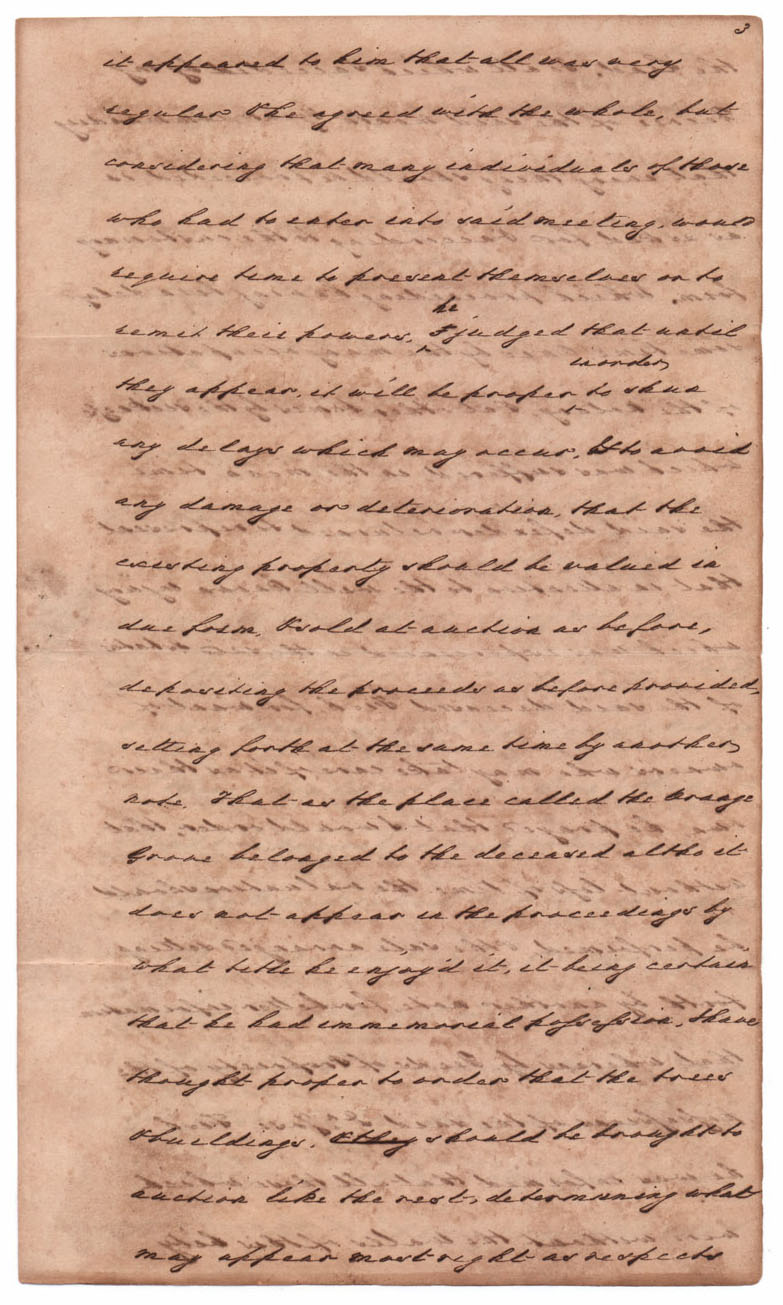 3
it appeared to him that all was very
regular & he agreed with the whole, but
considering that many individuals of those
who had to enter into said meeting, would
require time to present themselves or to
he
remit their powers, I judged that until
in order
they appear, it will be proper to shun
any delays which may occur, & to avoid
any damage or deterioration, that the
existing property should be valued in
due form, & sold at auction as before,
depositing the proceeds as before provided,
setting forth at the same time by another
note. That as the place called the Orange
Grove belonged to the deceased altho it
does not appear in the proceedings by
what title he enjoy'd it, it being certain
that he had immemorial possession, I have
thought proper to order that the trees
& buildings, & they should be brought to
auction like the rest, determining what
may appear most right as respects